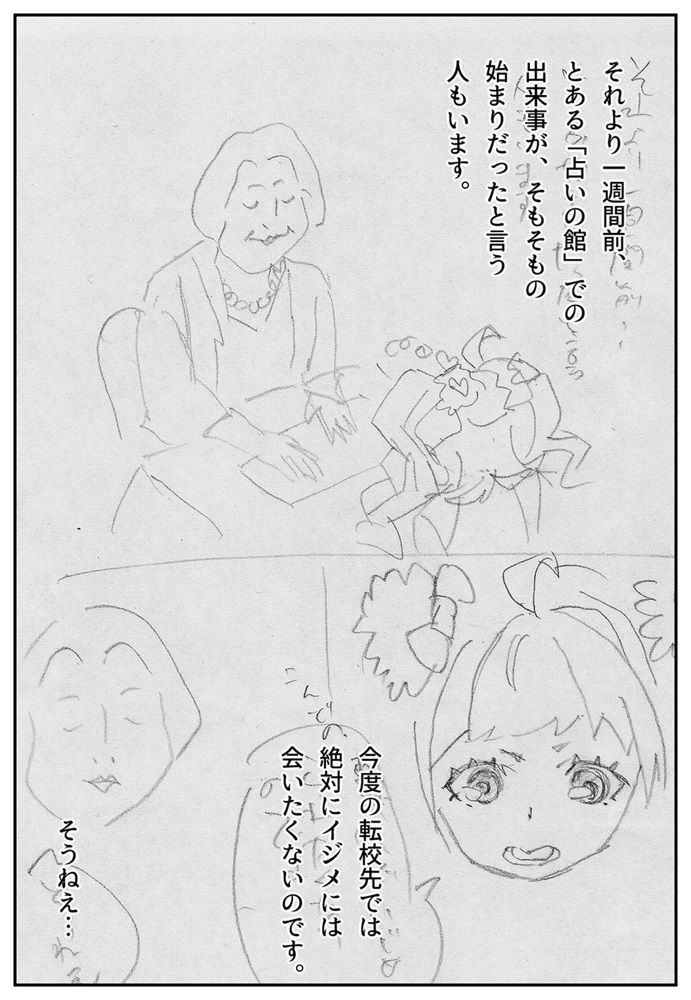 それより一週間前、
とある「占いの館」での
出来事が、そもそもの
始まりだったと言う
人もいます。
今度の転校先では
絶対にイジメには
会いたくないのです。
こんどの
そうねえ…